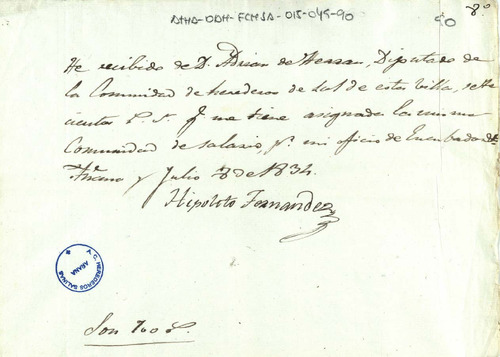 ATHA-DAH-FCMSA-015-045-90
8º
90
He recibido de D. Adrian de Herran, Diputado de
la Comunidad de herederos de Sal de esta Villa, sete
cientos r. v. q. me tiene asignado la misma
Comunidad de salario, pr. mi oficio de
Añana y Julio 8 de 1834.
Hipolito Fernandez
A. C. HEREDEROS SALINAS
AÑANA
Son 700 r.